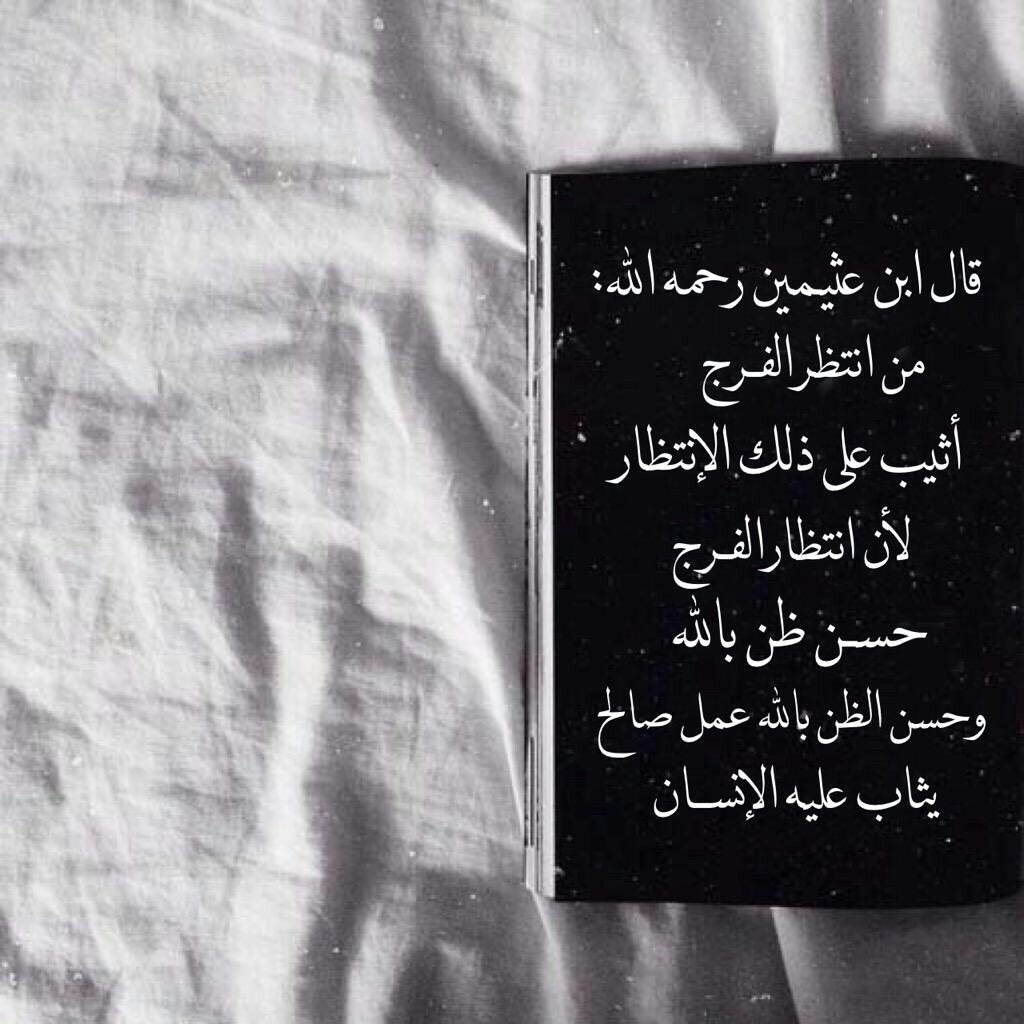 قال ابن عثيمين رحمه الله:
من انتظر الفرج
أثيب على ذلك الإنتظار
لأن انتظار الفرج
حسن ظن بالله
وحسن الظن بالله عمل صالح
يثاب عليه الإنسان